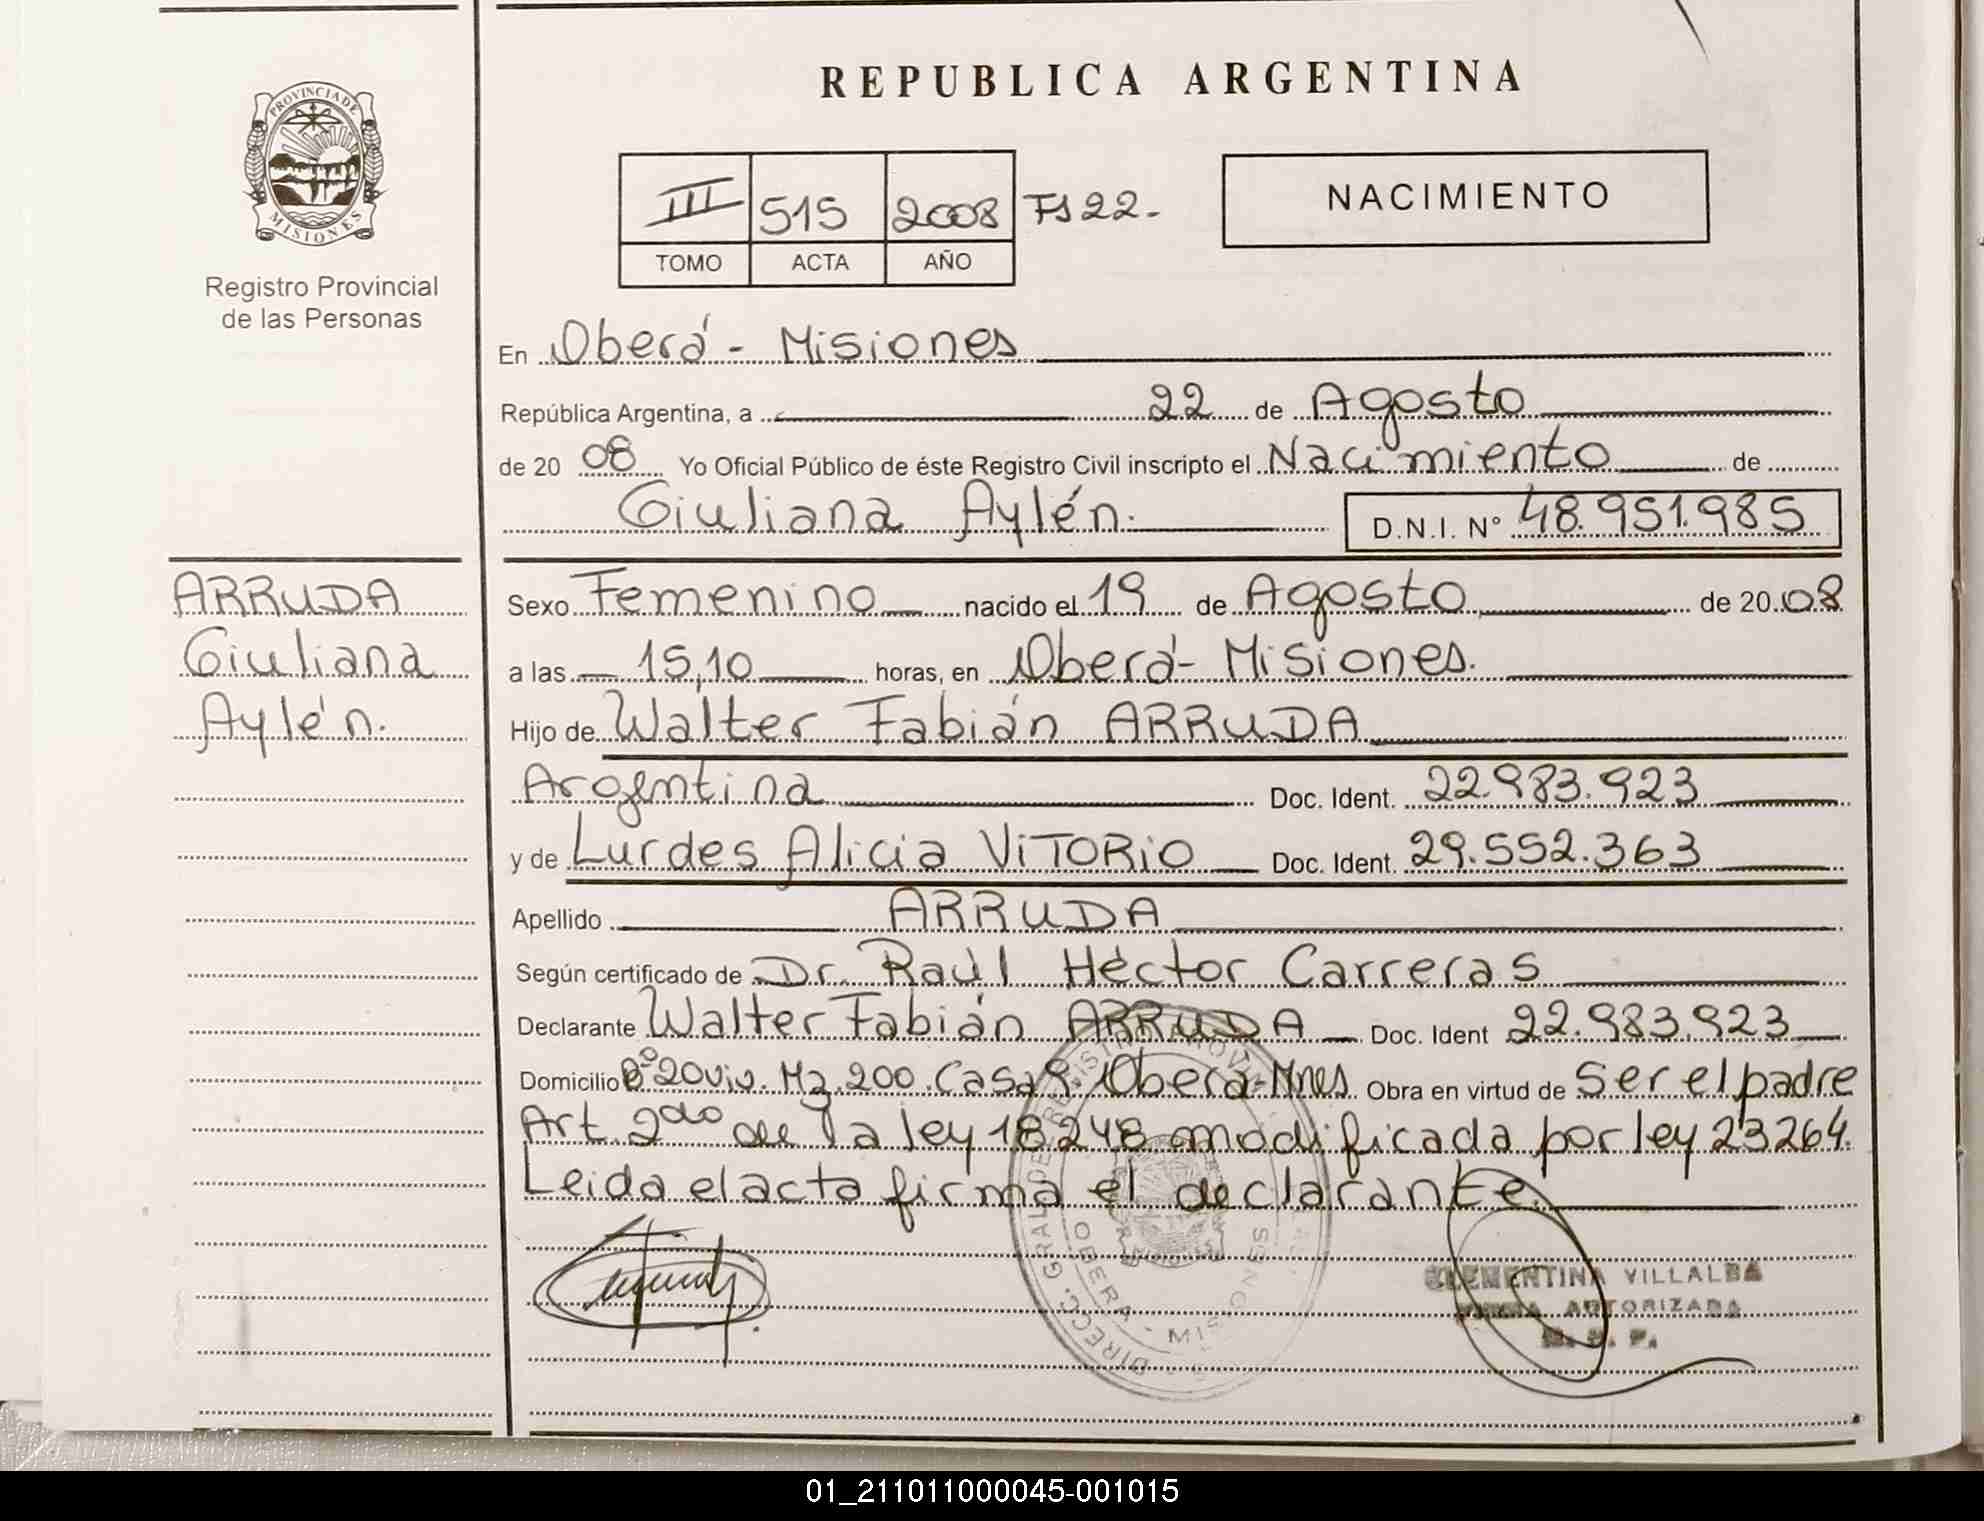 REPUBLICA ARGENTINA
PROVINCIA DE MISIONES
Registro Provincial
de las Personas
III 515 2008 Fs 22.-
TOMO ACTA AÑO
NACIMIENTO
En Oberá - Misiones
República Argentina, a 22 de Agosto
de 20 08 Yo Oficial Público de éste Registro Civil inscripto el Nacimiento de
Giuliana Aylén. D.N.I. N° 48.951.985
ARRUDA
Giuliana
Aylén.
Sexo Femenino nacido el 19 de Agosto de 20 08
a las 15,10 horas, en Oberá - Misiones.
Hijo de Walter Fabián ARRUDA
Argentina Doc. Ident. 22.983.923
y de Lurdes Alicia ViTORiO Doc. Ident. 29.552.363
Apellido ARRUDA
Según certificado de Dr. Raúl Héctor Carreras
Declarante Walter Fabián ARRUDA Doc. Ident 22.983.923
Domicilio B° 20 viv. Mz. 200. Casa 9. Oberá - Mnes. Obra en virtud de Ser el padre
Art. 2do de la ley 18248 modificada por ley 23264.
Leida el acta firma el declarante.
DIRECC. GRAL. DE REGISTRO PROVIN
OBERA - MISIONES
CLEMENTINA VILLALBA
FIRMA AUTORIZADA
R. P. P.
01_211011000045-001015